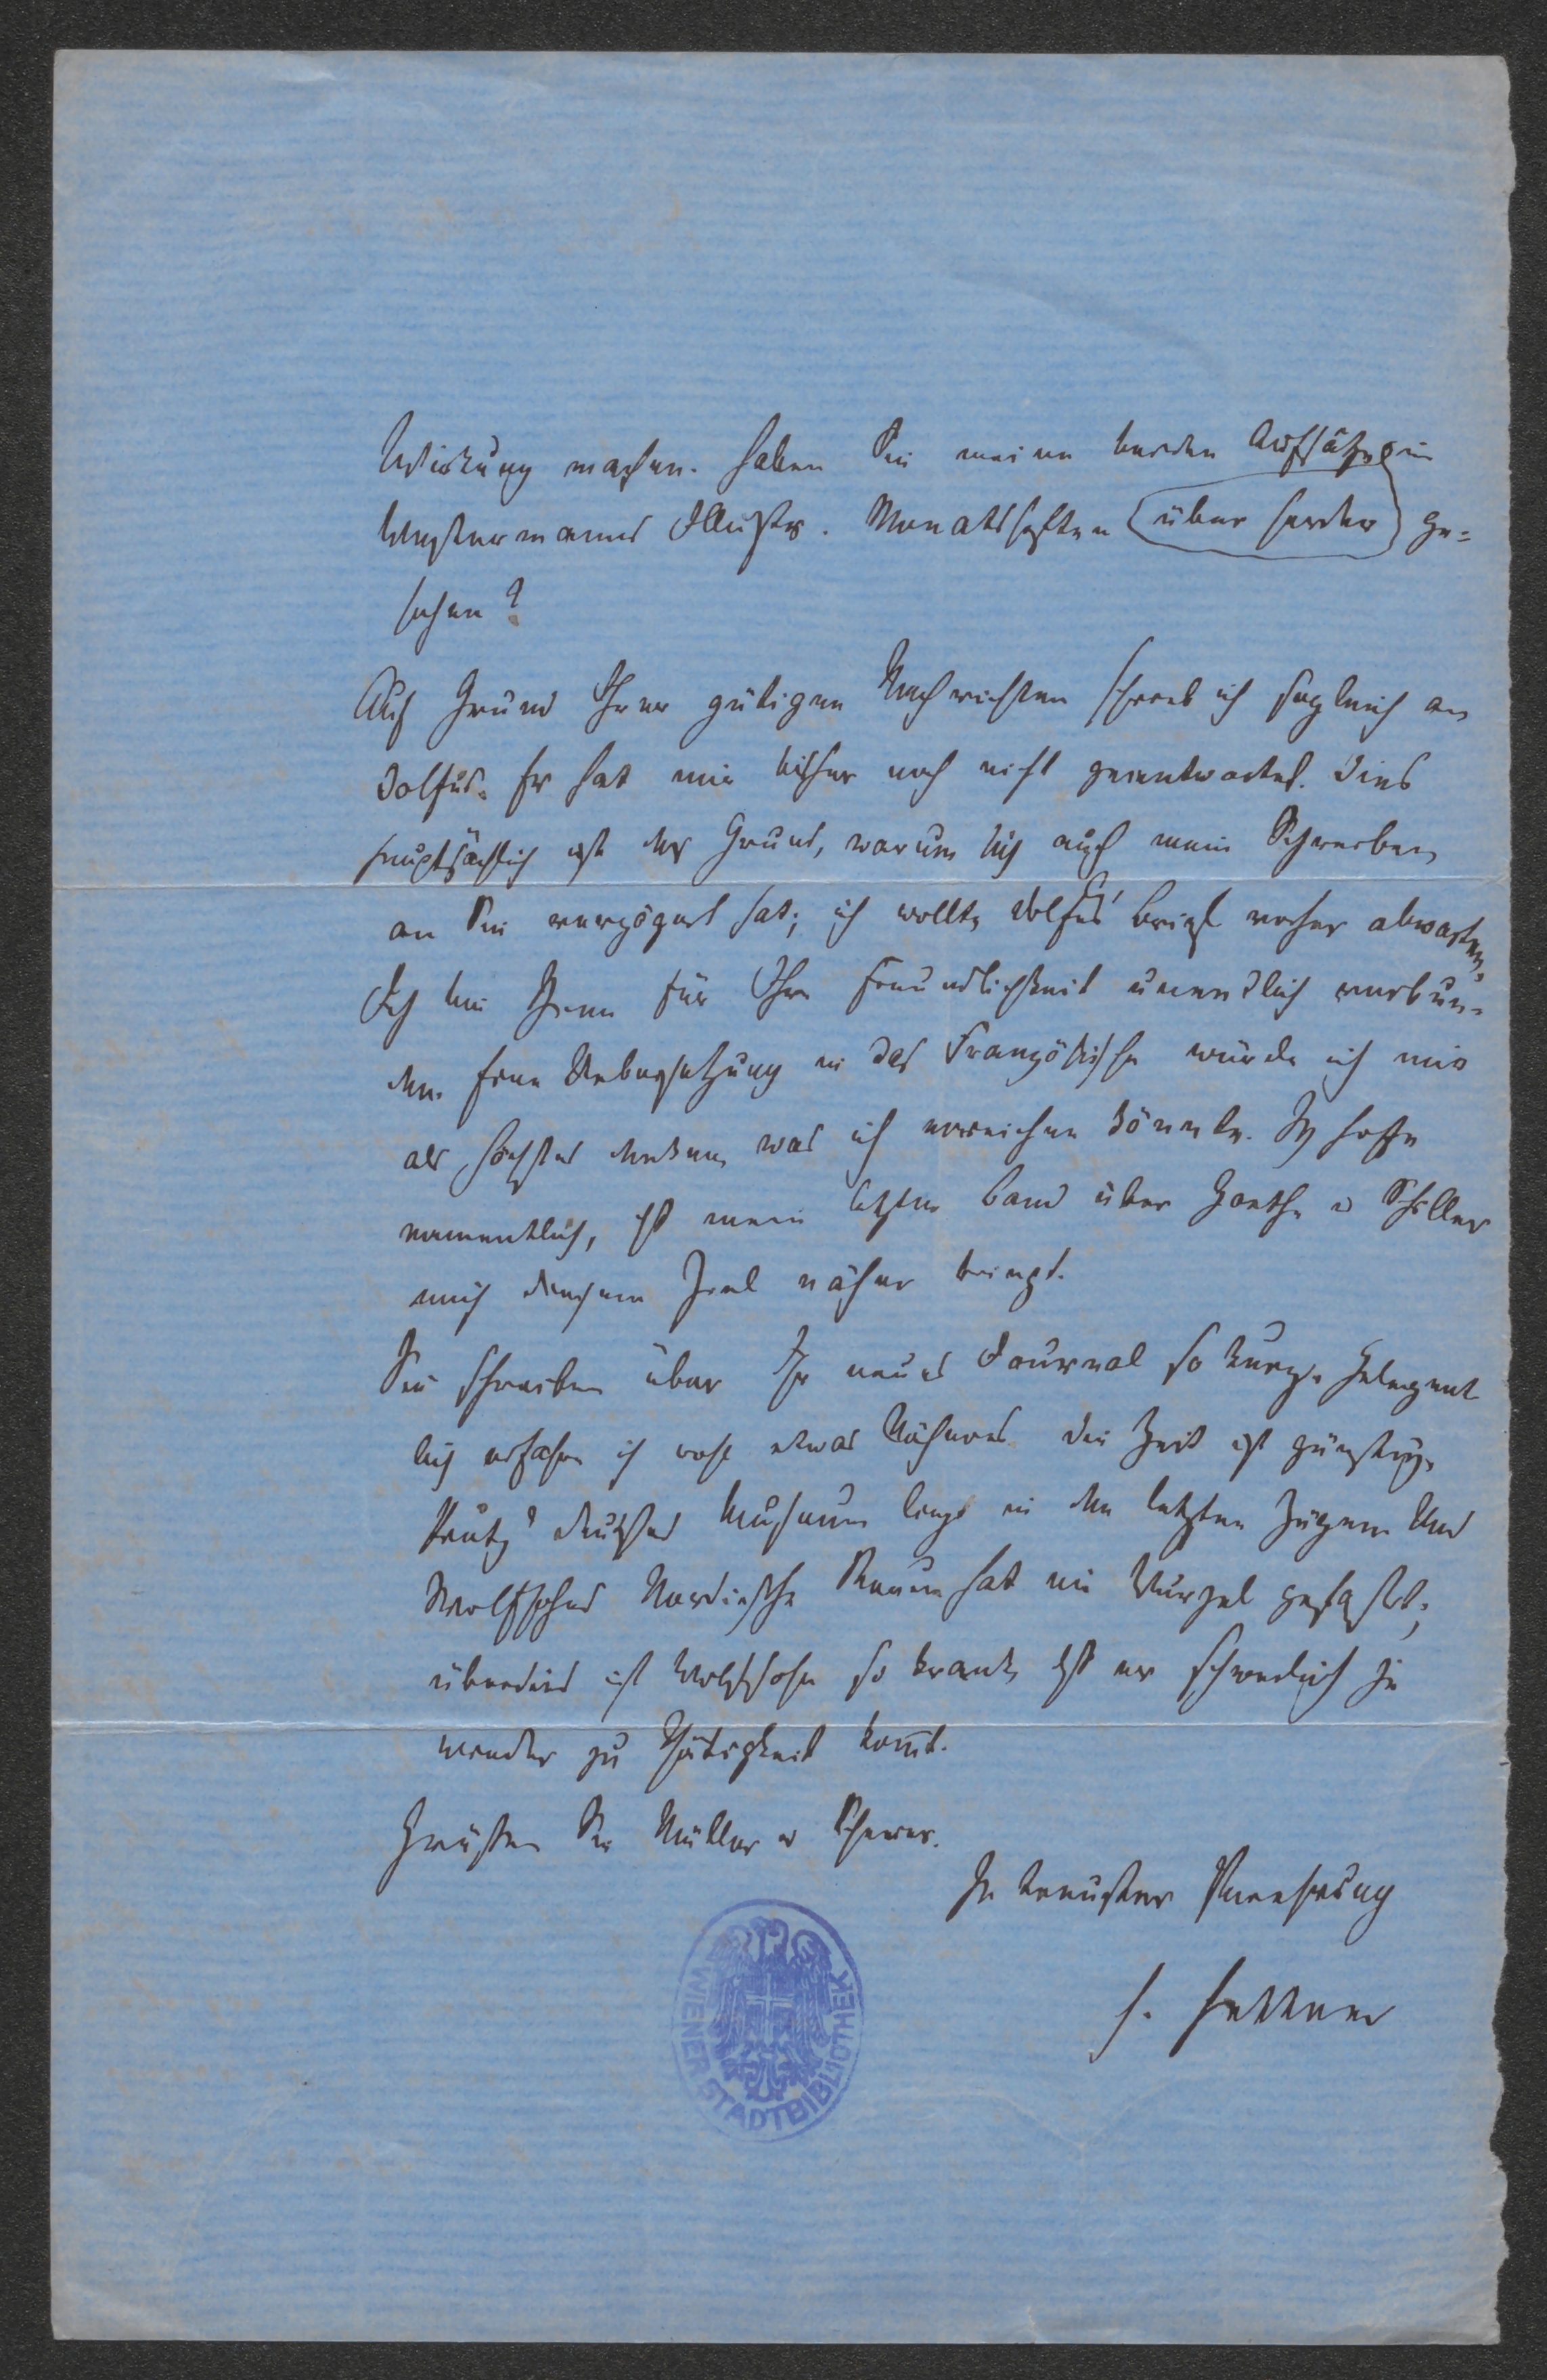 Wirkung machen. Haben Sie meine beiden Aufsätze in
Westermanns Illustr. Monatsheften (über Herder) ge=
sehen?
Auf Grund Ihrer gütigen Nachrichten schrieb ich sogleich an
Dolfus. Er hat mir bisher noch nicht geantwortet. Dies
hauptsächlich ist der Grund, warum sich auch mein Schreiben
an Sie verzögert hat; ich wollte Dolfus' Brief vorher abwarten.
Ich bin Ihnen für Ihre Freundlichkeit unendlich verbun-
den. Eine Uebersetzung in das Französische würde ich mir
als höchstes denken, was ich erreichen könnte. Ich hoffe
namentlich, daß mein letzter Band über Goethe u Schiller
mich diesem Ziel näher bringt.
Sie schreiben über Ihr neues Journal so kurz. Gelegent
lich erfahre ich wohl etwas Näheres. Die Zeit ist günstig.
Prutz' deutsches Museum liegt in den letzten Zügen. Und
Wolfsohns Nordische Revue hat nie Wurzel gefaßt;
überdies ist Wolfsohn so krank, daß er schwerlich je
wieder zu Thätigkeit kom̄t.
Grüßen Sie Müller u Scherer.
In treuster Verehrung
H. Hettner
WIENER STADTBIBLIOTHEK